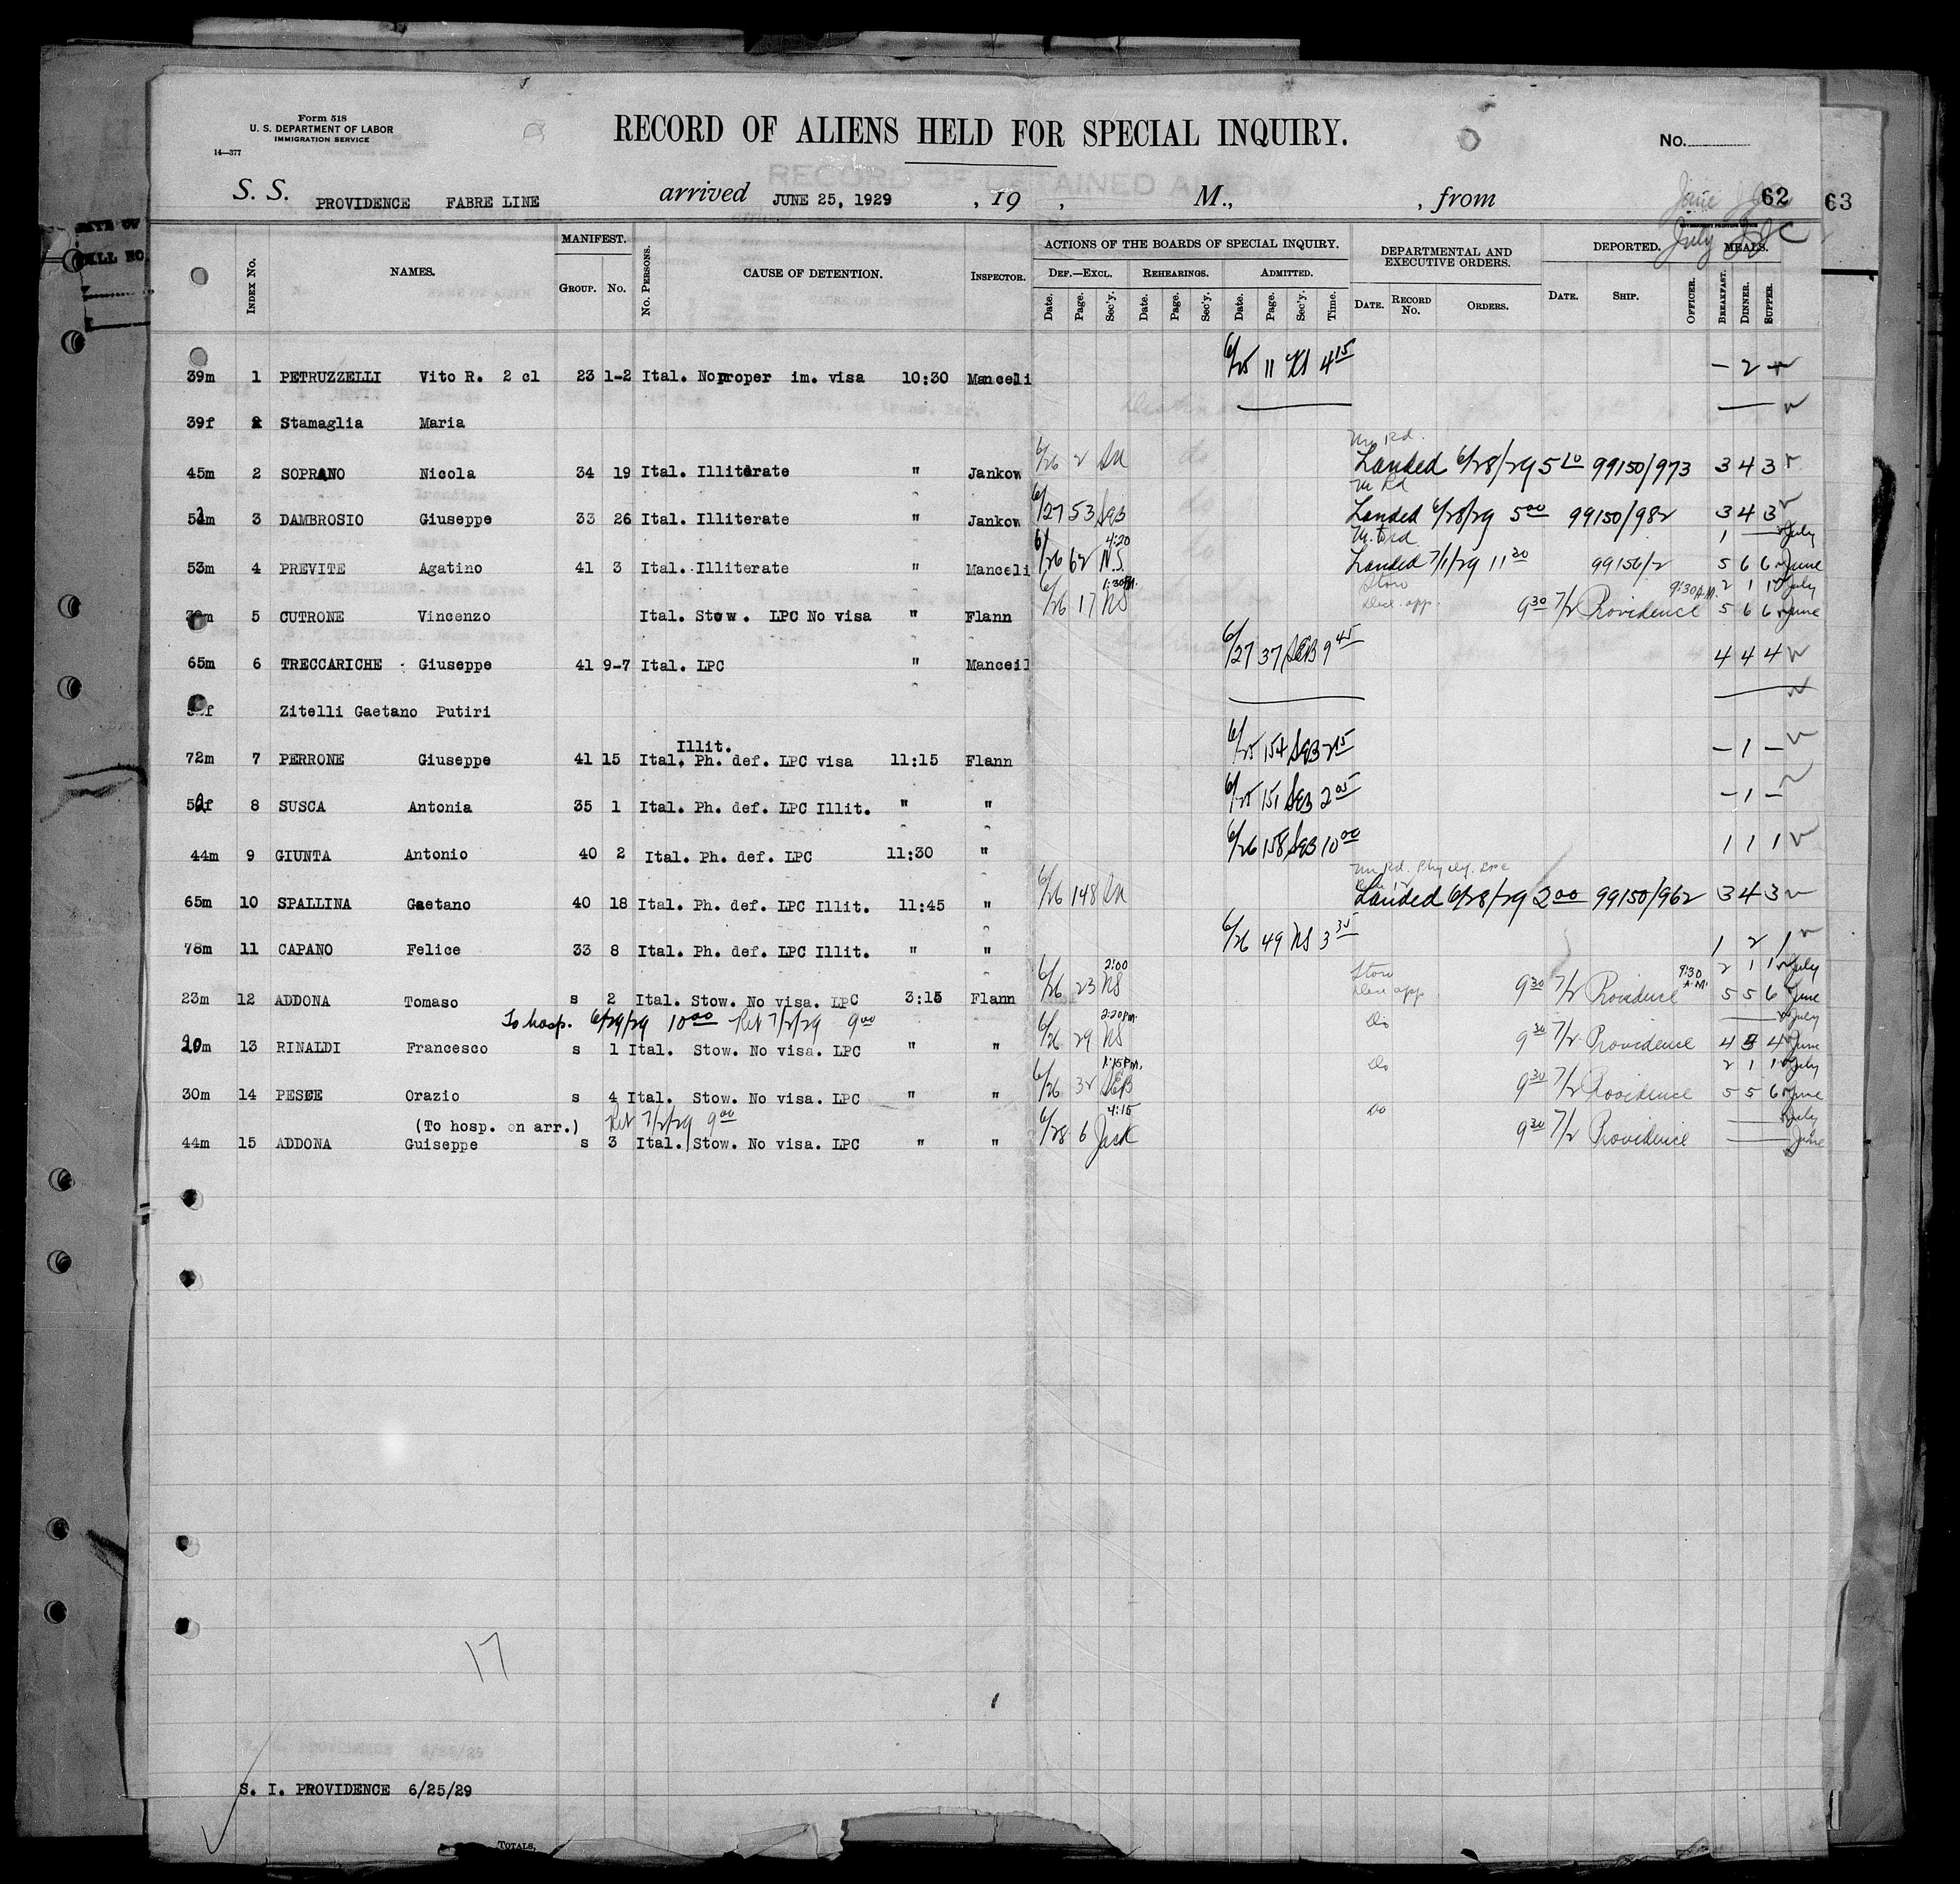 Form 518
U. S. DEPARTMENT OF LABOR
IMMIGRATION SERVICE
14—377
RECORD OF ALIENS HELD FOR SPECIAL INQUIRY.
No.
S. S. PROVIDENCE FABRE LINE arrived JUNE 25, 1929 , 19 , M., , from 62 63
July
INDEX No. NAMES. MANIFEST. GROUP. No. No. PERSONS. CAUSE OF DETENTION. INSPECTOR.
ACTIONS OF THE BOARDS OF SPECIAL INQUIRY. DEF.—EXCL. REHEARINGS. ADMITTED.
Date. Page. Sec'y. Date. Page. Sec'y. Date. Page. Sec'y. Time.
DEPARTMENTAL AND EXECUTIVE ORDERS. DATE. RECORD No. ORDERS.
DEPORTED. DATE. SHIP. OFFICER. MEALS. BREAKFAST. DINNER. SUPPER.
39m 1 PETRUZZELLI Vito R. 2 cl 23 1-2 Ital. No proper im. visa 10:30 Manceli 6/25 11 NS 4 15 — 2 —
39f Stamaglia Maria
45m 2 SOPRANO Nicola 34 19 Ital. Illiterate " Jankow 6/26 2 Landed 6/28/29 5 10 99150/973 3 4 3
52m 3 DAMBROSIO Giuseppe 33 26 Ital. Illiterate " Jankow 6/27 53 SEB Landed 6/28/29 5 00 99150/982 3 4 3
1 — — July
53m 4 PREVITE Agatino 41 3 Ital. Illiterate " Manceli 6/26 62 N.S. 4:20 Landed 7/1/29 11 20 99156/2 5 6 6 June
2 1 1 July
5 CUTRONE Vincenzo Ital. Stow. LPC No visa " Flann 6/26 17 NS 1:30PM. Stow 9:30 7/2 Providence 9:30 A.M. 5 6 6 June
65m 6 TRECCARICHE Giuseppe 41 9-7 Ital. LPC " Manceil 6/27 37 SEB 9 45 4 4 4
Zitelli Gaetano Putiri
Illit.
72m 7 PERRONE Giuseppe 41 15 Ital. Ph. def. LPC visa 11:15 Flann 6/25 154 SEB 2 15 — 1 —
8 SUSCA Antonia 35 1 Ital. Ph. def. LPC Illit. " " 6/25 151 SEB 2 05 — 1 —
44m 9 GIUNTA Antonio 40 2 Ital. Ph. def. LPC 11:30 " 6/26 158 SEB 10 00 1 1 1
65m 10 SPALLINA Gaetano 40 18 Ital. Ph. def. LPC Illit. 11:45 " 6/26 148 Landed 6/28/29 2 00 99150/962 3 4 3
78m 11 CAPANO Felice 33 8 Ital. Ph. def. LPC Illit. " " 6/26 49 NS 3 35 1 2 1
2 1 1 July
23m 12 ADDONA Tomaso s 2 Ital. Stow. No visa. LPC 3:15 Flann 6/26 23 NS 2:00 Stow 9 30 7/2 Providence 9:30 A.M. 5 5 6 June
To hosp. 6/29/29 10 00 Ret 7/2/29 9 00
— July
20m 13 RINALDI Francesco s 1 Ital. Stow. No visa. LPC " " 6/26 29 NS 2:20pm. Do 9 30 7/2 Providence 4 3 4 June
2 1 1 July
30m 14 PESCE Orazio s 4 Ital. Stow. No visa. LPC " " 6/26 32 SEB 1:15PM. Do 9 30 7/2 Providence 5 5 6 June
(To hosp. on arr.) Ret 7/2/29 9 00
— July
44m 15 ADDONA Guiseppe s 3 Ital. Stow. No visa. LPC " " 6/28 6 4:15 Do 9 30 7/2 Providence — June
17
S. I. PROVIDENCE 6/25/29
TOTALS,